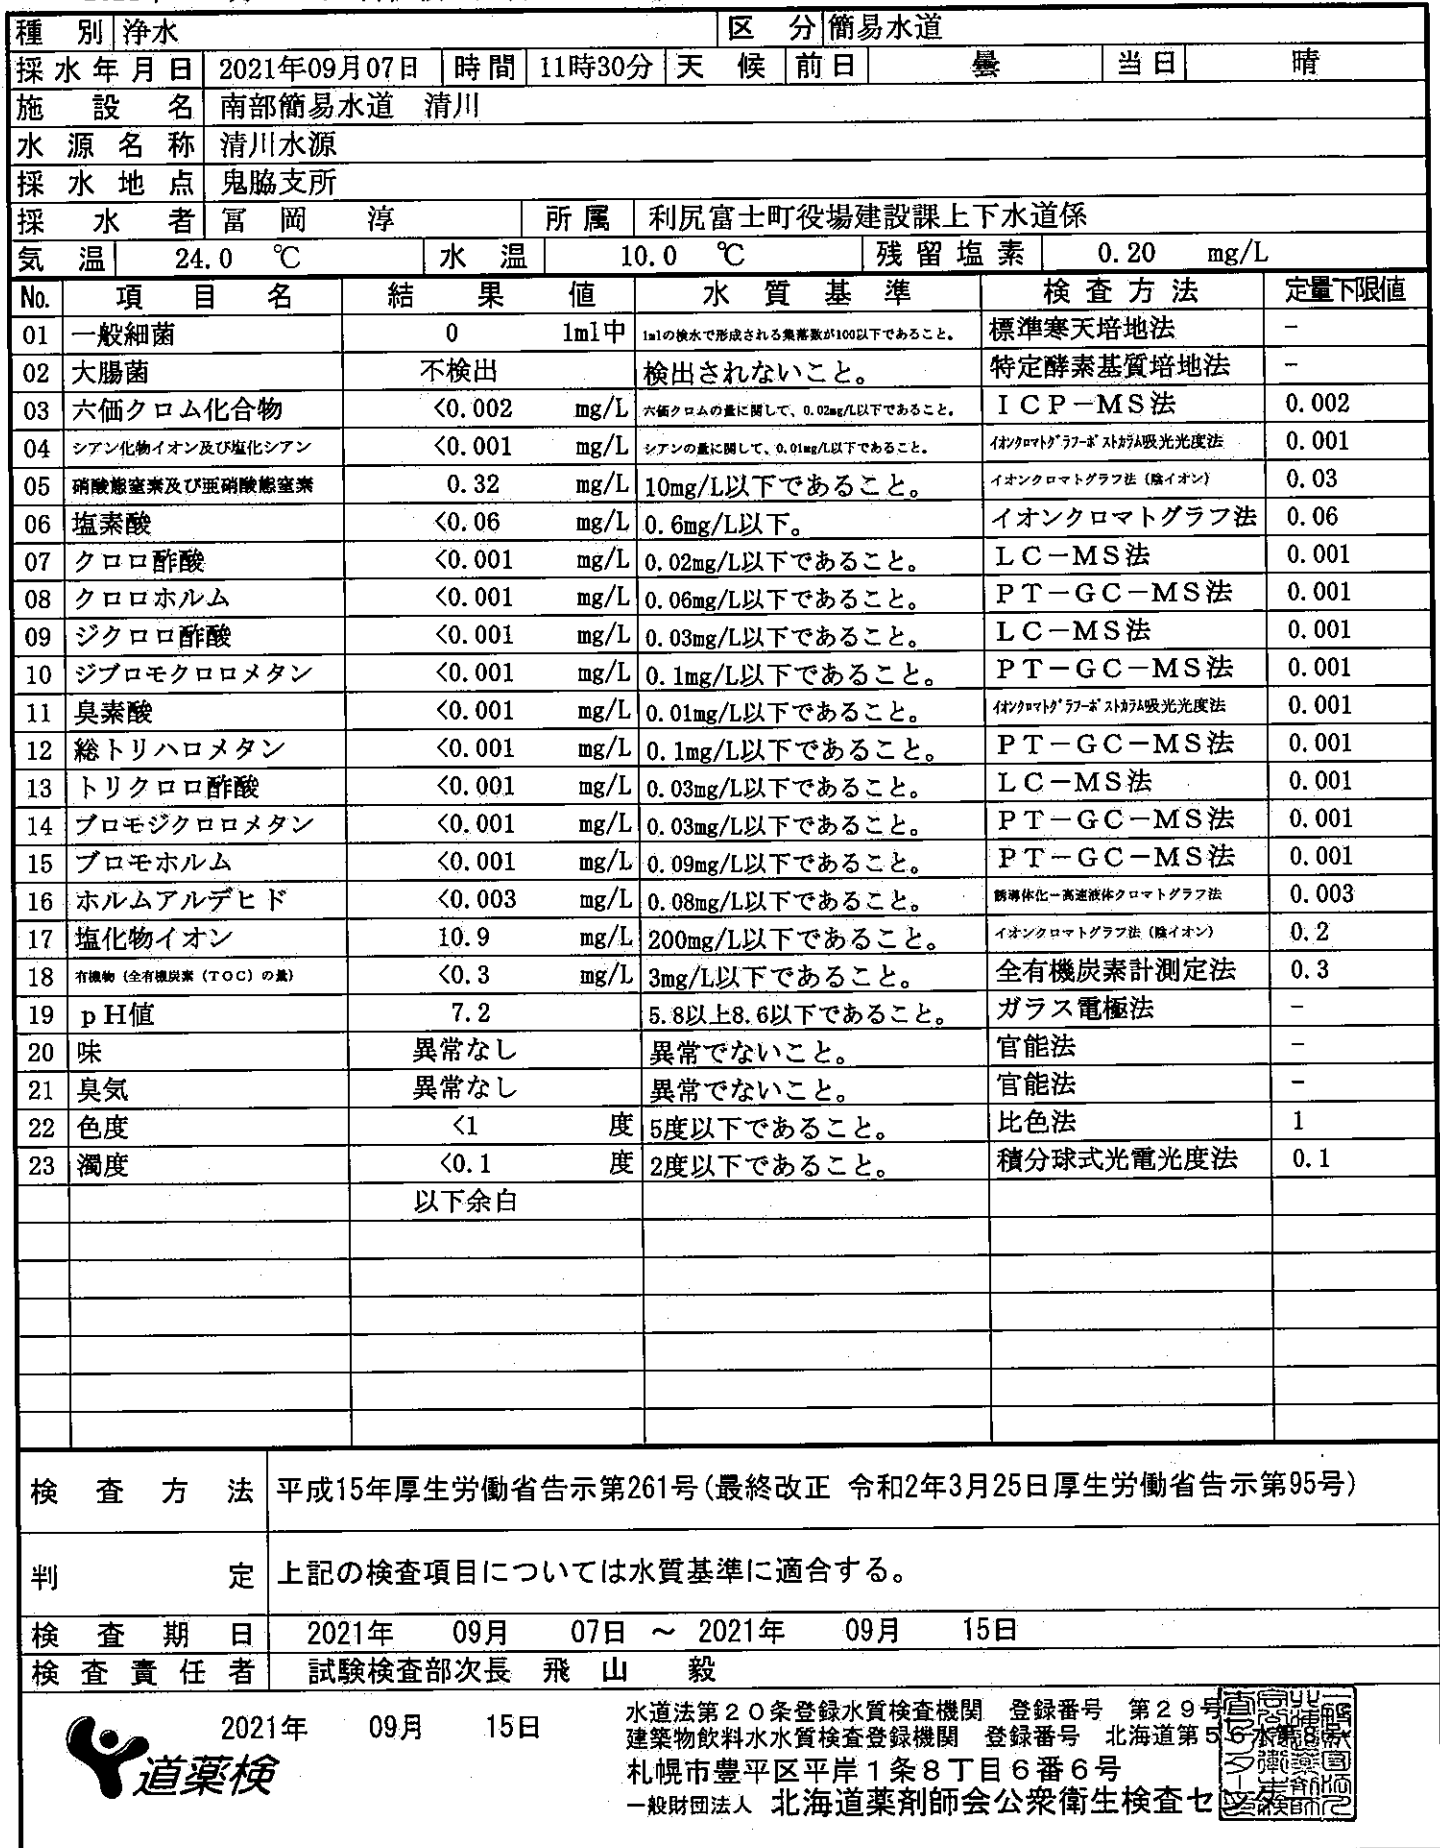 種別 浄水 区分 簡易水道
採水年月日 2021年09月07日 時間 11時30分 天候 前日 曇 当日 晴
施設名 南部簡易水道 清川
水源名称 清川水源
採水地点 鬼脇支所
採水者 冨岡 淳 所属 利尻富士町役場建設課上下水道係
気温 24.0 ℃ 水温 10.0 ℃ 残留塩素 0.20 mg/L
No. 項目名 結果値 水質基準 検査方法 定量下限値
01 一般細菌 0 1ml中 1mlの検水で形成される集落数が100以下であること。 標準寒天培地法 -
02 大腸菌 不検出 検出されないこと。 特定酵素基質培地法 -
03 六価クロム化合物 <0.002 mg/L 六価クロムの量に関して、0.02mg/L以下であること。 ICP-MS法 0.002
04 シアン化物イオン及び塩化シアン <0.001 mg/L シアンの量に関して、0.01mg/L以下であること。 イオンクロマトグラフ-ポストカラム吸光光度法 0.001
05 硝酸態窒素及び亜硝酸態窒素 0.32 mg/L 10mg/L以下であること。 イオンクロマトグラフ法(陰イオン) 0.03
06 塩素酸 <0.06 mg/L 0.6mg/L以下。 イオンクロマトグラフ法 0.06
07 クロロ酢酸 <0.001 mg/L 0.02mg/L以下であること。 LC-MS法 0.001
08 クロロホルム <0.001 mg/L 0.06mg/L以下であること。 PT-GC-MS法 0.001
09 ジクロロ酢酸 <0.001 mg/L 0.03mg/L以下であること。 LC-MS法 0.001
10 ジブロモクロロメタン <0.001 mg/L 0.1mg/L以下であること。 PT-GC-MS法 0.001
11 臭素酸 <0.001 mg/L 0.01mg/L以下であること。 イオンクロマトグラフ-ポストカラム吸光光度法 0.001
12 総トリハロメタン <0.001 mg/L 0.1mg/L以下であること。 PT-GC-MS法 0.001
13 トリクロロ酢酸 <0.001 mg/L 0.03mg/L以下であること。 LC-MS法 0.001
14 ブロモジクロロメタン <0.001 mg/L 0.03mg/L以下であること。 PT-GC-MS法 0.001
15 ブロモホルム <0.001 mg/L 0.09mg/L以下であること。 PT-GC-MS法 0.001
16 ホルムアルデヒド <0.003 mg/L 0.08mg/L以下であること。 誘導体化-高速液体クロマトグラフ法 0.003
17 塩化物イオン 10.9 mg/L 200mg/L以下であること。 イオンクロマトグラフ法(陰イオン) 0.2
18 有機物(全有機炭素(TOC)の量) <0.3 mg/L 3mg/L以下であること。 全有機炭素計測定法 0.3
19 pH値 7.2 5.8以上8.6以下であること。 ガラス電極法 -
20 味 異常なし 異常でないこと。 官能法 -
21 臭気 異常なし 異常でないこと。 官能法 -
22 色度 <1 度 5度以下であること。 比色法 1
23 濁度 <0.1 度 2度以下であること。 積分球式光電光度法 0.1
以下余白
検査方法 平成15年厚生労働省告示第261号(最終改正 令和2年3月25日厚生労働省告示第95号)
判定 上記の検査項目については水質基準に適合する。
検査期日 2021年 09月 07日 ～ 2021年 09月 15日
検査責任者 試験検査部次長 飛山 毅
2021年 09月 15日
道薬検
水道法第20条登録水質検査機関 登録番号 第29号
建築物飲料水水質検査登録機関 登録番号 北海道第56水第8号
札幌市豊平区平岸1条8丁目6番6号
一般財団法人 北海道薬剤師会公衆衛生検査センター